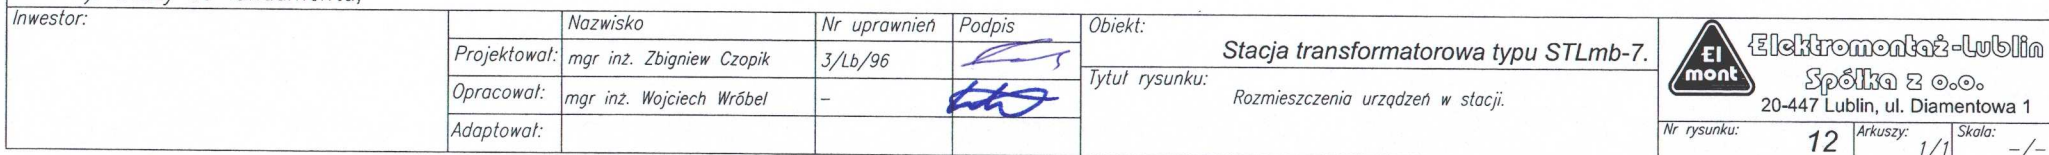 Inwestor:
Nazwisko
Nr uprawnień
Podpis
Projektował:
mgr inż. Zbigniew Czopik
3/Lb/96
Opracował:
mgr inż. Wojciech Wróbel
–
Adaptował:
Obiekt:
Stacja transformatorowa typu STLmb-7.
Tytuł rysunku:
Rozmieszczenia urządzeń w stacji.
El
mont
Elektromontaż-Lublin
Spółka z o.o.
20-447 Lublin, ul. Diamentowa 1
Nr rysunku:
12
Arkuszy:
1/1
Skala:
–/–